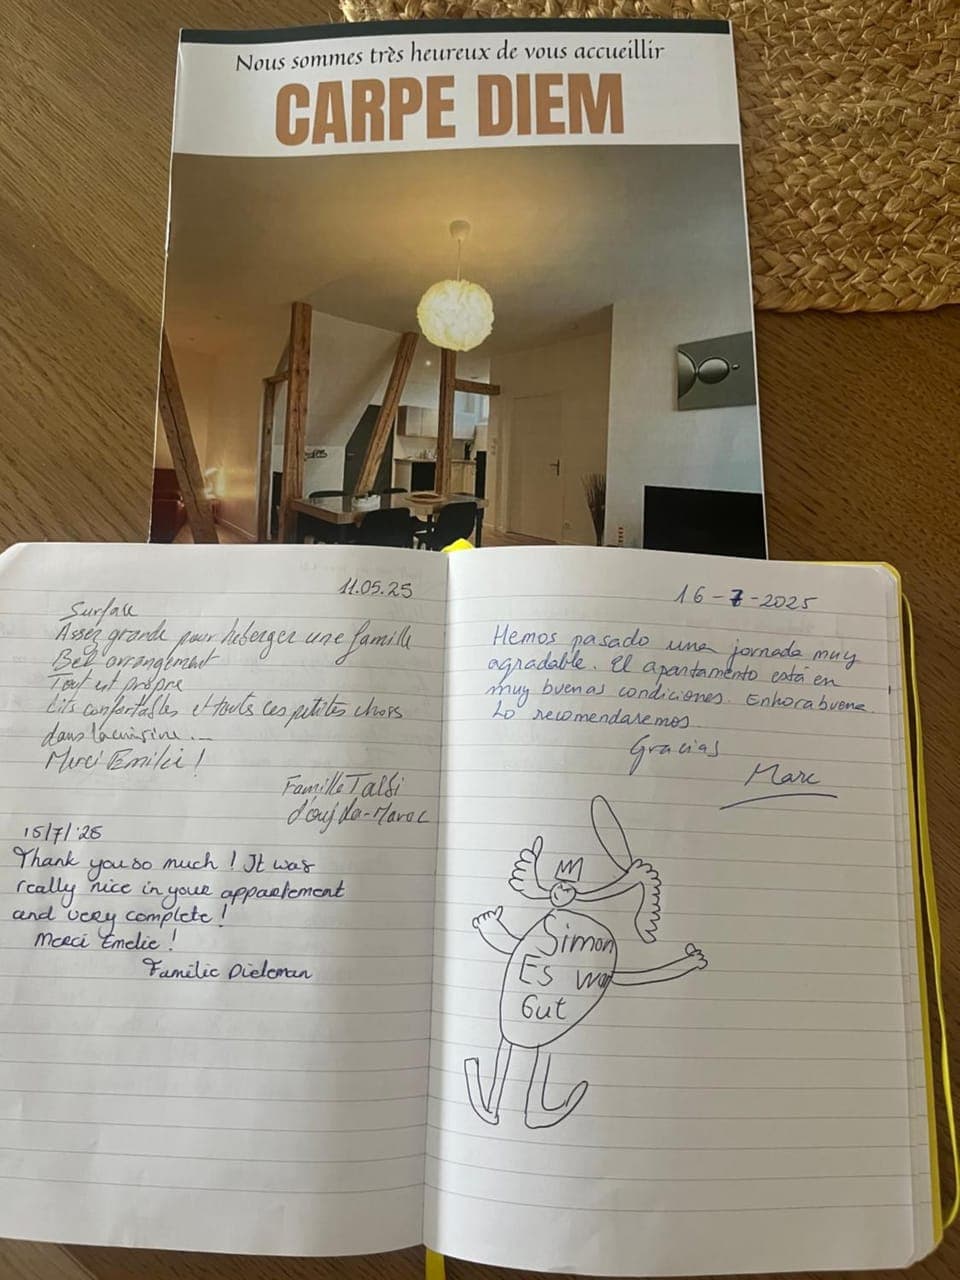 Nous sommes très heureux de vous accueillir
CARPE DIEM
11.05.25
Surface
Assez grande pour heberger une famille
Bel arrangement
Tout est propre
Lits confortables et toute ces petites choses
dans la cuisine...
Merci Emilie !
Famille Talbi
d'oujda-Maroc
15/7/'25
Thank you so much ! It was
really nice in your appartement
and very complete !
Merci Emelie !
Familie Dieleman
16-7-2025
Hemos pasado una jornada muy
agradable. El apartamento está en
muy buenas condiciones. Enhorabuena.
Lo recomendaremos
Gracias
Marc
Simon
Es war
Gut